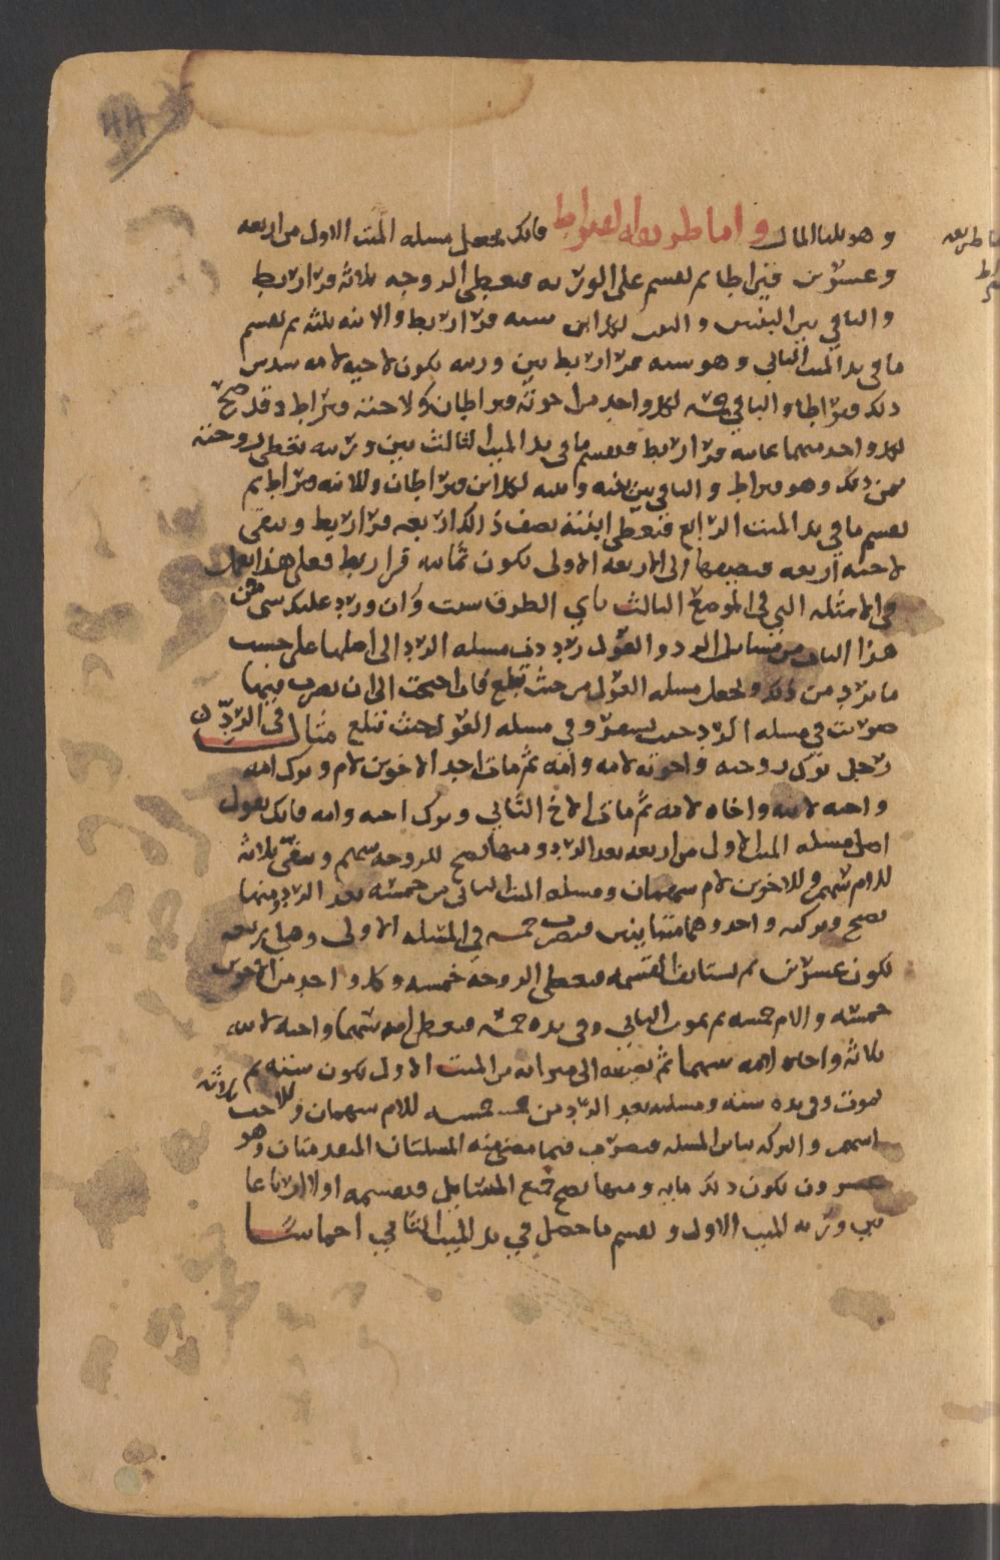 44
وهو ثلث المال واما طريقه القراريط فانك تجعل مسله الميت الاول من اربعه
وعشرين قيراطا ثم تقسم على الورثه فتعطي الزوجه ثلاثه قراريط
والباقي بين البنين والبنت لكل ابن سته قراريط والابنه ثلثه ثم تقسم
ما في يد الميت الثاني وهو سته قراريط بين ورثته يكون لاخيه لامه سدس
ذلك قيراطا والباقي خمسه لكل واحد من اخوته قيراطان ولاخته قيراط وقد صح
لكل واحد منهما ثمانيه قراريط فتقسم ما في يد الميت الثالث بين ورثته تعطي زوجته
ثمن ذلك وهو قيراط والباقي بين بنيه وابنته لكل ابن قيراطان وللابنه قيراط ثم
تقسم ما في يد الميت الرابع فتعطي ابنته نصف ذلك اربعه قراريط ويبقى
لاخته اربعه فتضيفها الى الاربعه الاولى تكون ثمانيه قراريط فعلى هذا العمل
في الامثله التي في الموضع الثالث باي الطرق شيت وان ورد عليك شي من
هذا الباب من مسايل الرد والعول رددت مسله الرد الى اصلها على حسب
ما ترد من ذلك وتجعل مسله العول من حيث تبلغ فاذا احتجت الى ان تضرب فيها
ضربت في مسله الرد حيث تستقر وفي مسله العول حيث تبلغ مثال في الرد
رجل ترك زوجته واخوته لامه وامه ثم مات احد الاخوين لام وترك امه
واخته لابيه واخاه لامه ثم مات الاخ الثاني وترك اخته وامه فانك تقول
اصل مسله الميت الاولى من اربعه بعد الرد ومنها تصح للزوجه سهم ويبقى ثلاثه
للام سهم وللاخوين لام سهمان ومسله الميت الثاني من خمسه بعد الرد ومنها
تصح وتركته واحد وهما متباينين فتضرب خمسه في المسله الاولى وهي اربعه
تكون عشرين ثم تستانف القسمه فتعطي الزوجه خمسه وكل واحد من الاخوين
خمسه والام خمسه ثم يموت الثاني وفي يده خمسه فتعطي امه سهما واخته لابيه
ثلاثه واخاه لامه سهما ثم تضيفه الى ميراثه من الميت الاول يكون سته ثم
يموت وفي يده سته ومسلته بعد الرد من خمسه للام سهمان وللاخت ثلاثه
اسهم والتركه تباين المسله فتضرب فيما صحت منه المسلتان المتقدمتان وهو
عشرون تكون ذلك مايه ومنها تصح جميع المسايل فتقسمه اولا ارباعا
بين ورثه الميت الاول وتقسم ما حصل في يد الميت الثاني اخماسا